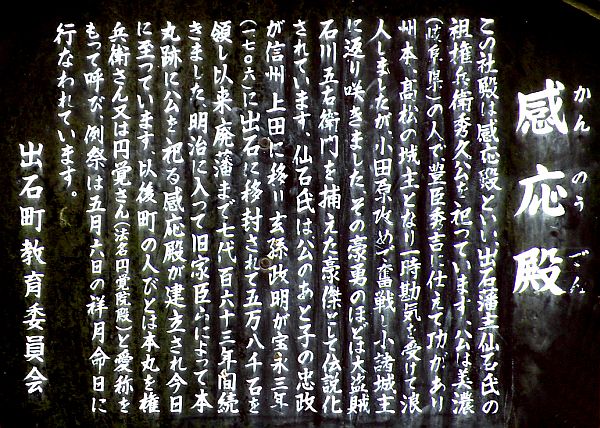 感応殿
かんのうでん
この社殿は感応殿といい、出石藩主仙石氏の
祖権兵衛秀久公を祀っています。公は美濃
(岐阜県)の人で豊臣秀吉に仕えて功があり
州本、高松の城主となり一時勘気を受けて浪
人しましたが、小田原攻めで奮戦し小諸城主
に返り咲きました。その豪勇のほどは大盗賊
石川五右衛門を捕えた豪傑として伝説化
されています。仙石氏は公のあと子の忠政
が信州上田に移り玄孫政明が宝永三年
(一七〇六)に出石に移封されて五万八千石を
領し以来廃藩まで七代百六十三年間続
きました。明治に入って旧家臣らによって本
丸跡に公を祀る感応殿が建立され今日
に至っています。以後町の人びとは本丸を権
兵衛さん又は円覚さん(法名円覚院殿)と愛称を
もって呼び、例祭は五月六日の祥月命日に
行なわれています。
出石町教育委員会